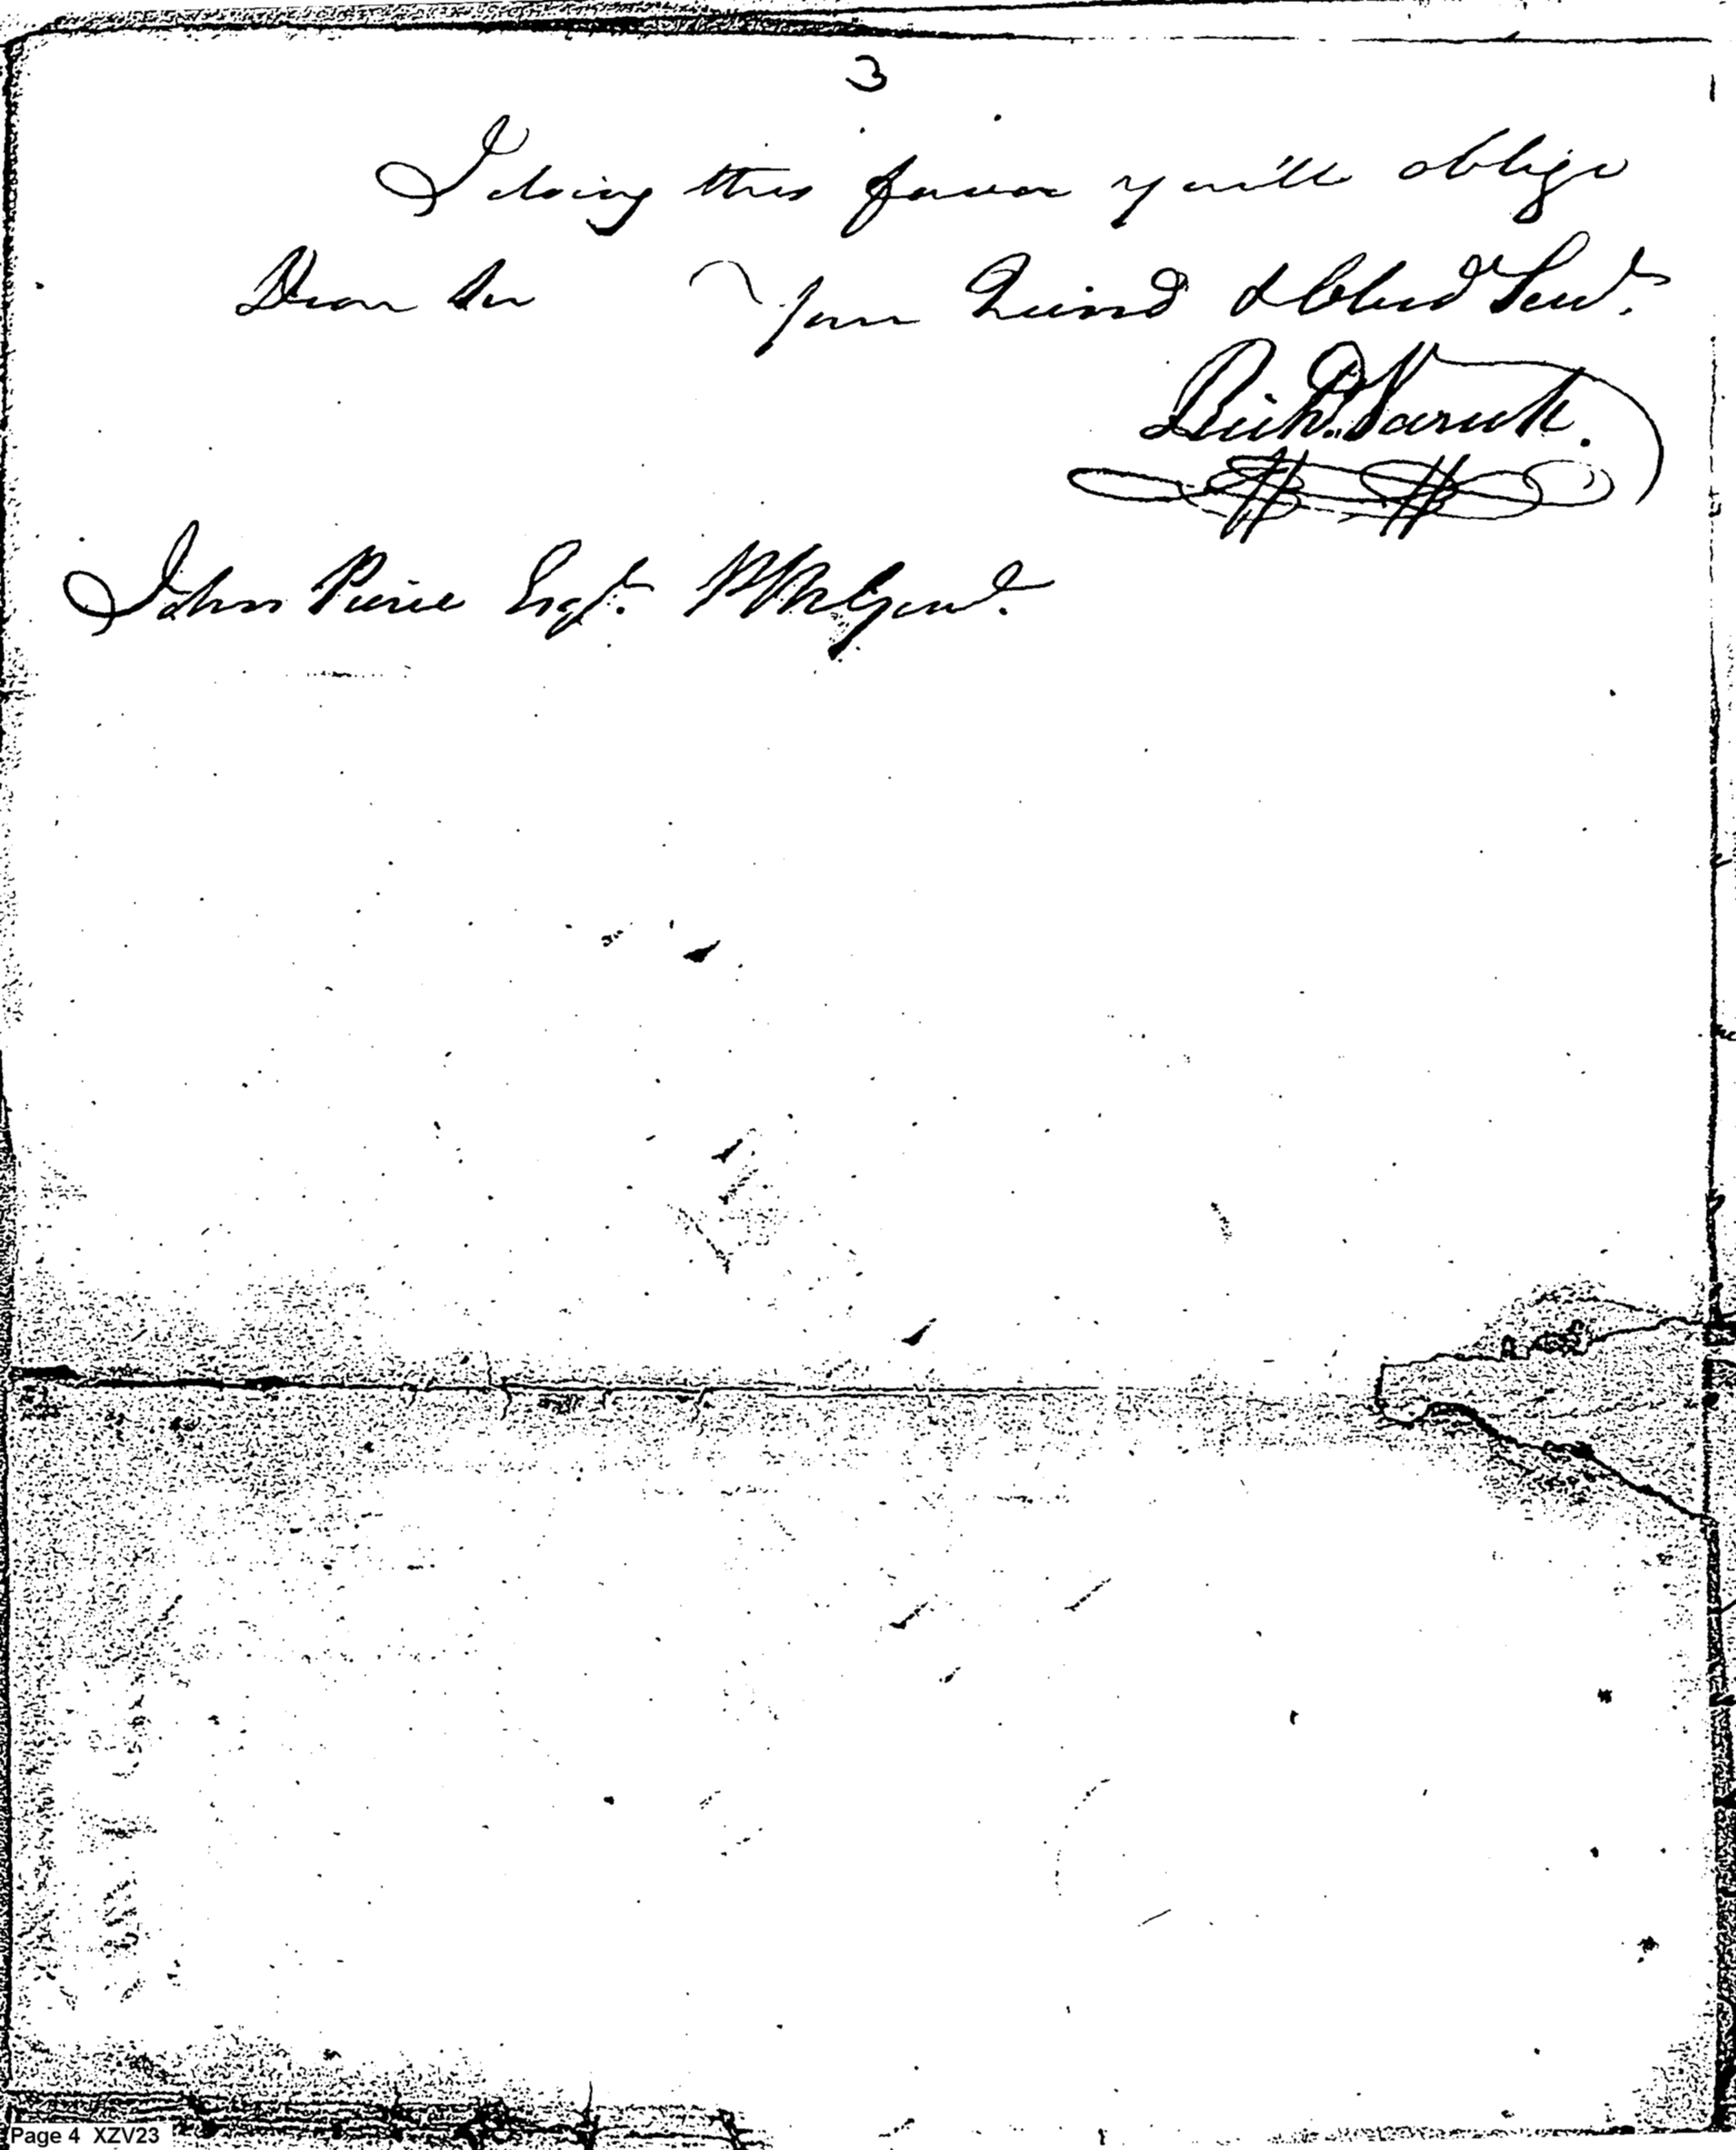 3
I doing this favor you'll oblige
Dear Sir Your Friend & Obed Servt.
Richd. Varick.
John Pierce Esqr. PMGenl.
Page 4 XZV23